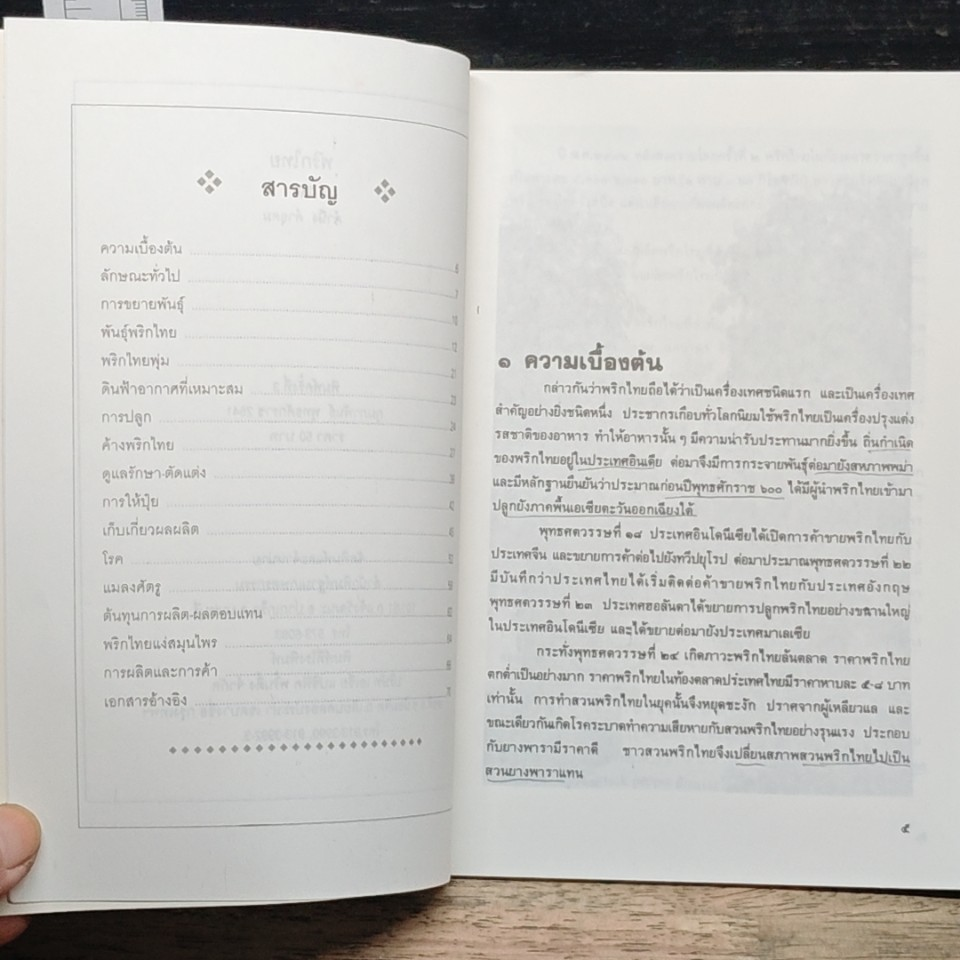 สารบัญ
ความเบื้องต้น
ลักษณะทั่วไป 7
การขยายพันธุ์ 10
พันธุ์พริกไทย 12
พริกไทยพุ่ม 21
ดินฟ้าอากาศที่เหมาะสม 23
การปลูก 24
ค้างพริกไทย
ดูแลรักษา-ตัดแต่ง
การให้ปุ๋ย
เก็บเกี่ยวผลผลิต
โรค
แมลงศัตรู
ต้นทุนการผลิต-ผลตอบแทน
พริกไทยแง่สมุนไพร
การผลิตและการค้า
เอกสารอ้างอิง
๑ ความเบื้องต้น
กล่าวกันว่าพริกไทยถือได้ว่าเป็นเครื่องเทศชนิดแรก และเป็นเครื่องเทศ
สำคัญอย่างยิ่งชนิดหนึ่ง ประชากรเกือบทั่วโลกนิยมใช้พริกไทยเป็นเครื่องปรุงแต่ง
รสชาติของอาหาร ทำให้อาหารนั้น ๆ มีความน่ารับประทานมากยิ่งขึ้น ถิ่นกำเนิด
ของพริกไทยอยู่ในประเทศอินเดีย ต่อมาจึงมีการกระจายพันธุ์ต่อมายังสหภาพพม่า
และมีหลักฐานยืนยันว่าประมาณก่อนปีพุทธศักราช ๖๐๐ ได้มีผู้นำพริกไทยเข้ามา
ปลูกยังภาคพื้นเอเซียตะวันออกเฉียงใต้
พุทธศตวรรษที่ ๑๘ ประเทศอินโดนีเซียได้เปิดการค้าขายพริกไทยกับ
ประเทศจีน และขยายการค้าต่อไปยังทวีปยุโรป ต่อมาประมาณพุทธศตวรรษที่ ๒๒
มีบันทึกว่าประเทศไทยได้เริ่มติดต่อค้าขายพริกไทยกับประเทศอังกฤษ
พุทธศตวรรษที่ ๒๓ ประเทศฮอลันดาได้ขยายการปลูกพริกไทยอย่างขนานใหญ่
ในประเทศอินโดนีเซีย และได้ขยายต่อมายังประเทศมาเลเซีย
กระทั่งพุทธศตวรรษที่ ๒๔ เกิดภาวะพริกไทยล้นตลาด ราคาพริกไทย
ตกต่ำเป็นอย่างมาก ราคาพริกไทยในท้องตลาดประเทศไทยมีราคาหาบละ ๕-๘ บาท
เท่านั้น การทำสวนพริกไทยในยุคนั้นจึงหยุดชะงัก ปราศจากผู้เหลียวแล และ
ขณะเดียวกันเกิดโรคระบาดทำความเสียหายกับสวนพริกไทยอย่างรุนแรง ประกอบ
กับยางพารามีราคาดี ชาวสวนพริกไทยจึงเปลี่ยนสภาพสวนพริกไทยไปเป็น
สวนยางพาราแทน
๕